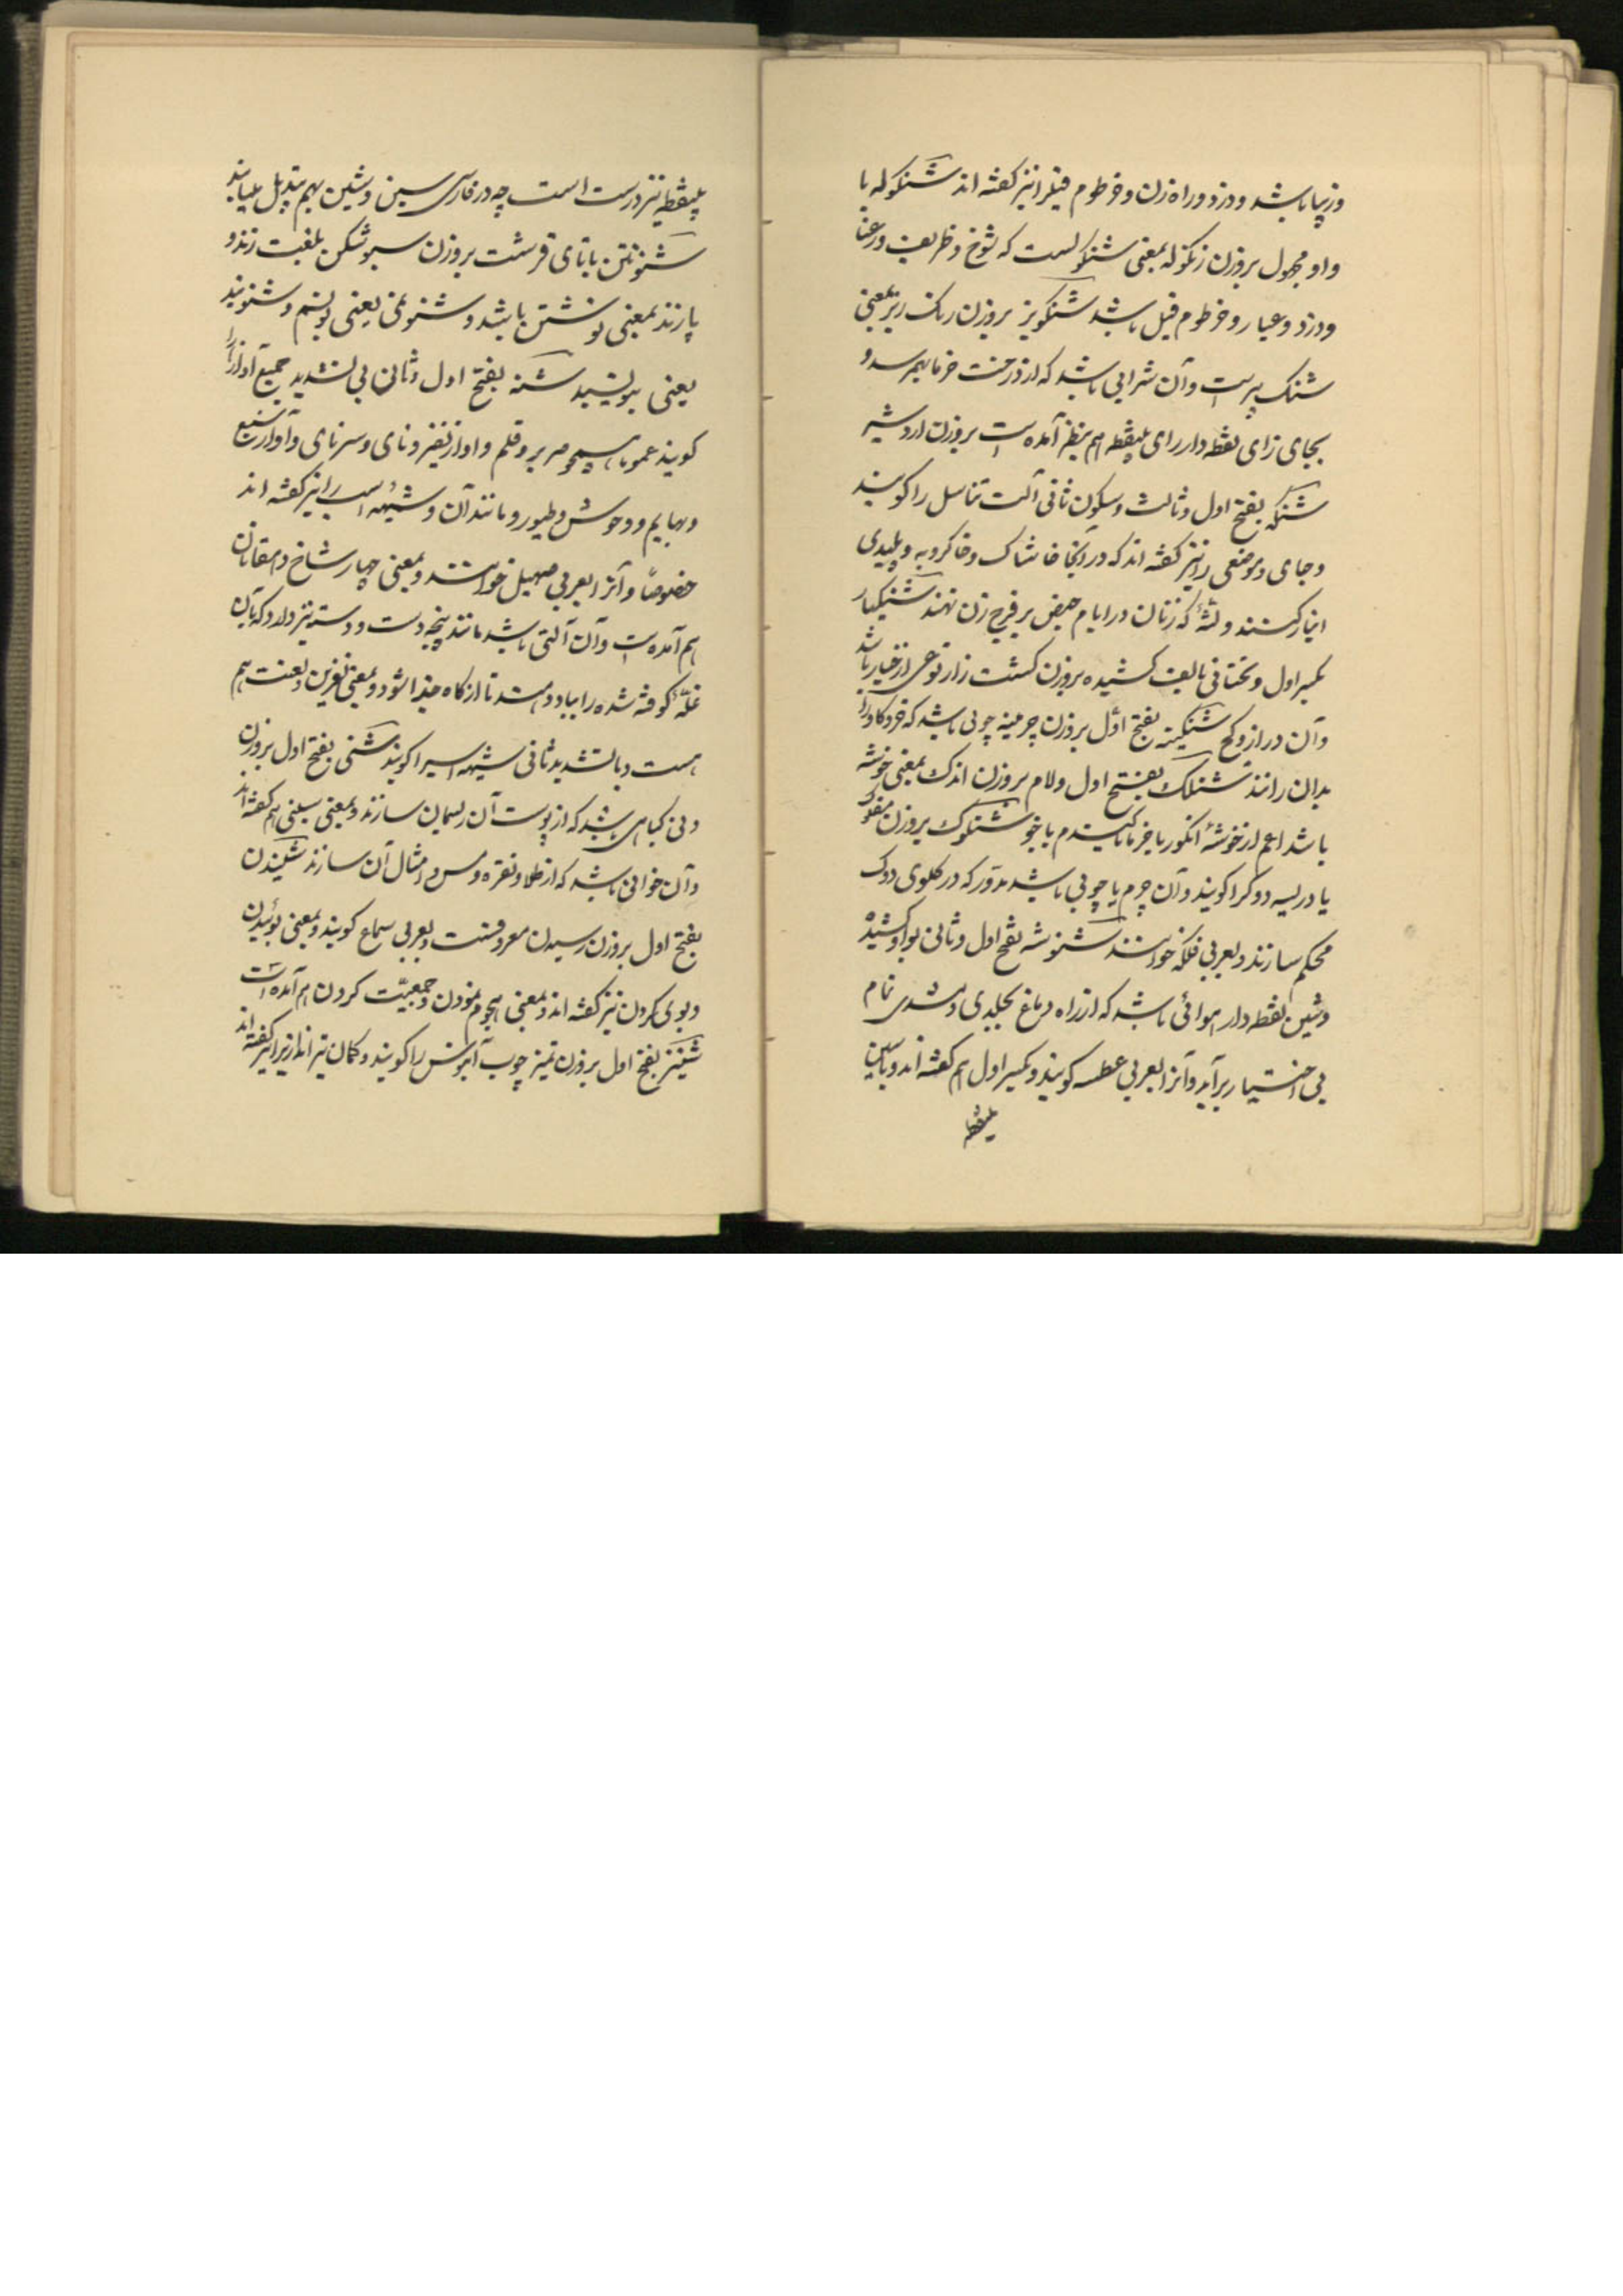 وزیبا باشد و دزد و راه زن و خرطوم فیل را نیز گفته اند شنکوله با
واو مجهول بروزن زنکوله بمعنی شنکولست که شوخ و ظریف و رعنا
و دزد و عیار و خرطوم فیل باشد شنکویز بروزن رنک ریز بمعنی
شنک بیرست و آن شرابی باشد که از درخت خرما بهم رسد و
بجای زای نقطه دار رای بینقطه هم بنظر آمده است بروزن اردشیر
شنکه بفتح اول و ثالث و سکون ثانی آلت تناسل را کویند
و جای و موضعی را نیز کفته اند که در آنجا خاشاک و خاکروبه و پلیدی
انبار کنند و لتهٔ که زنان در ایام حیض بر فرج زن نهند شنکیار
بکسر اول و تحتانی بالف کشیده بروزن کشت زار نوعی از خیار باشد
و آن دراز و کج شنکینه بفتح اول بروزن چرمینه چوبی باشد که خر و کاو را
بدان رانند شنلک بفتح اول و لام بروزن اندک بمعنی خوشه
باشد اعم از خوشهٔ انکور یا خرما یا کندم یا جو شنکوک بروزن مفلوک
بادریسه دوک را کویند و آن چرم یا چوبی باشد مدور که در کلوی دوک
محکم سازند و بعربی فلکه خوانند شنوشه بفتح اول و ثانی بواو کشیده
و شین نقطه دار هوائی باشد که از راه دماغ بجلدی و تندی تمام
بی اختیار برآید و آنرا بعربی عطسه کویند و بکسر اول هم کفته اند و با سین
بینقطه
بینقطه نیز درست است چه در فارسی سین و شین بهم تبدیل مییابند
شنونتن با تای قرشت بروزن سبو شکن بلغت زند و
پازند بمعنی نوشتن باشد و شنونمی یعنی نویسم و شنونید
یعنی بنویسید شنه بفتح اول و ثانی بی تشدید جمیع آوازها را
کویند عموما همچو صریر قلم و آواز نفیر و نای و سرنای و آواز سباع
و بهایم و وحوش و طیور و مانند آن و شیههٔ اسب را نیز کفته اند
خصوصًا و آنرا بعربی صهیل خوانند و بمعنی چهار شاخ دهقانان
هم آمده است و آن آلتی باشد مانند پنجه دست و دسته نیز دارد که بآن
غلّهٔ کوفته شده را بباد دهند تا از کاه جدا شود و بمعنی نفرین و لعنت هم
هست و با تشدید ثانی شیههٔ اسب را کویند شنی بفتح اول بروزن
و نی کیاهی باشد که از پوست آن ریسمان سازند و بمعنی سینی هم کفته اند
و آن خوانی باشد که از طلا و نقره و مس و امثال آن سازند شنیدن
بفتح اول بروزن رسیدن معروفست و بعربی سماع کویند و بمعنی بوئیدن
و بوی کردن نیز کفته اند و بمعنی هجوم نمودن و جمعیّت کردن هم آمده است
شنیز بفتح اول بروزن تمیز چوب آبنوس را کویند و کمان تیر اندازی را نیز کفته اند